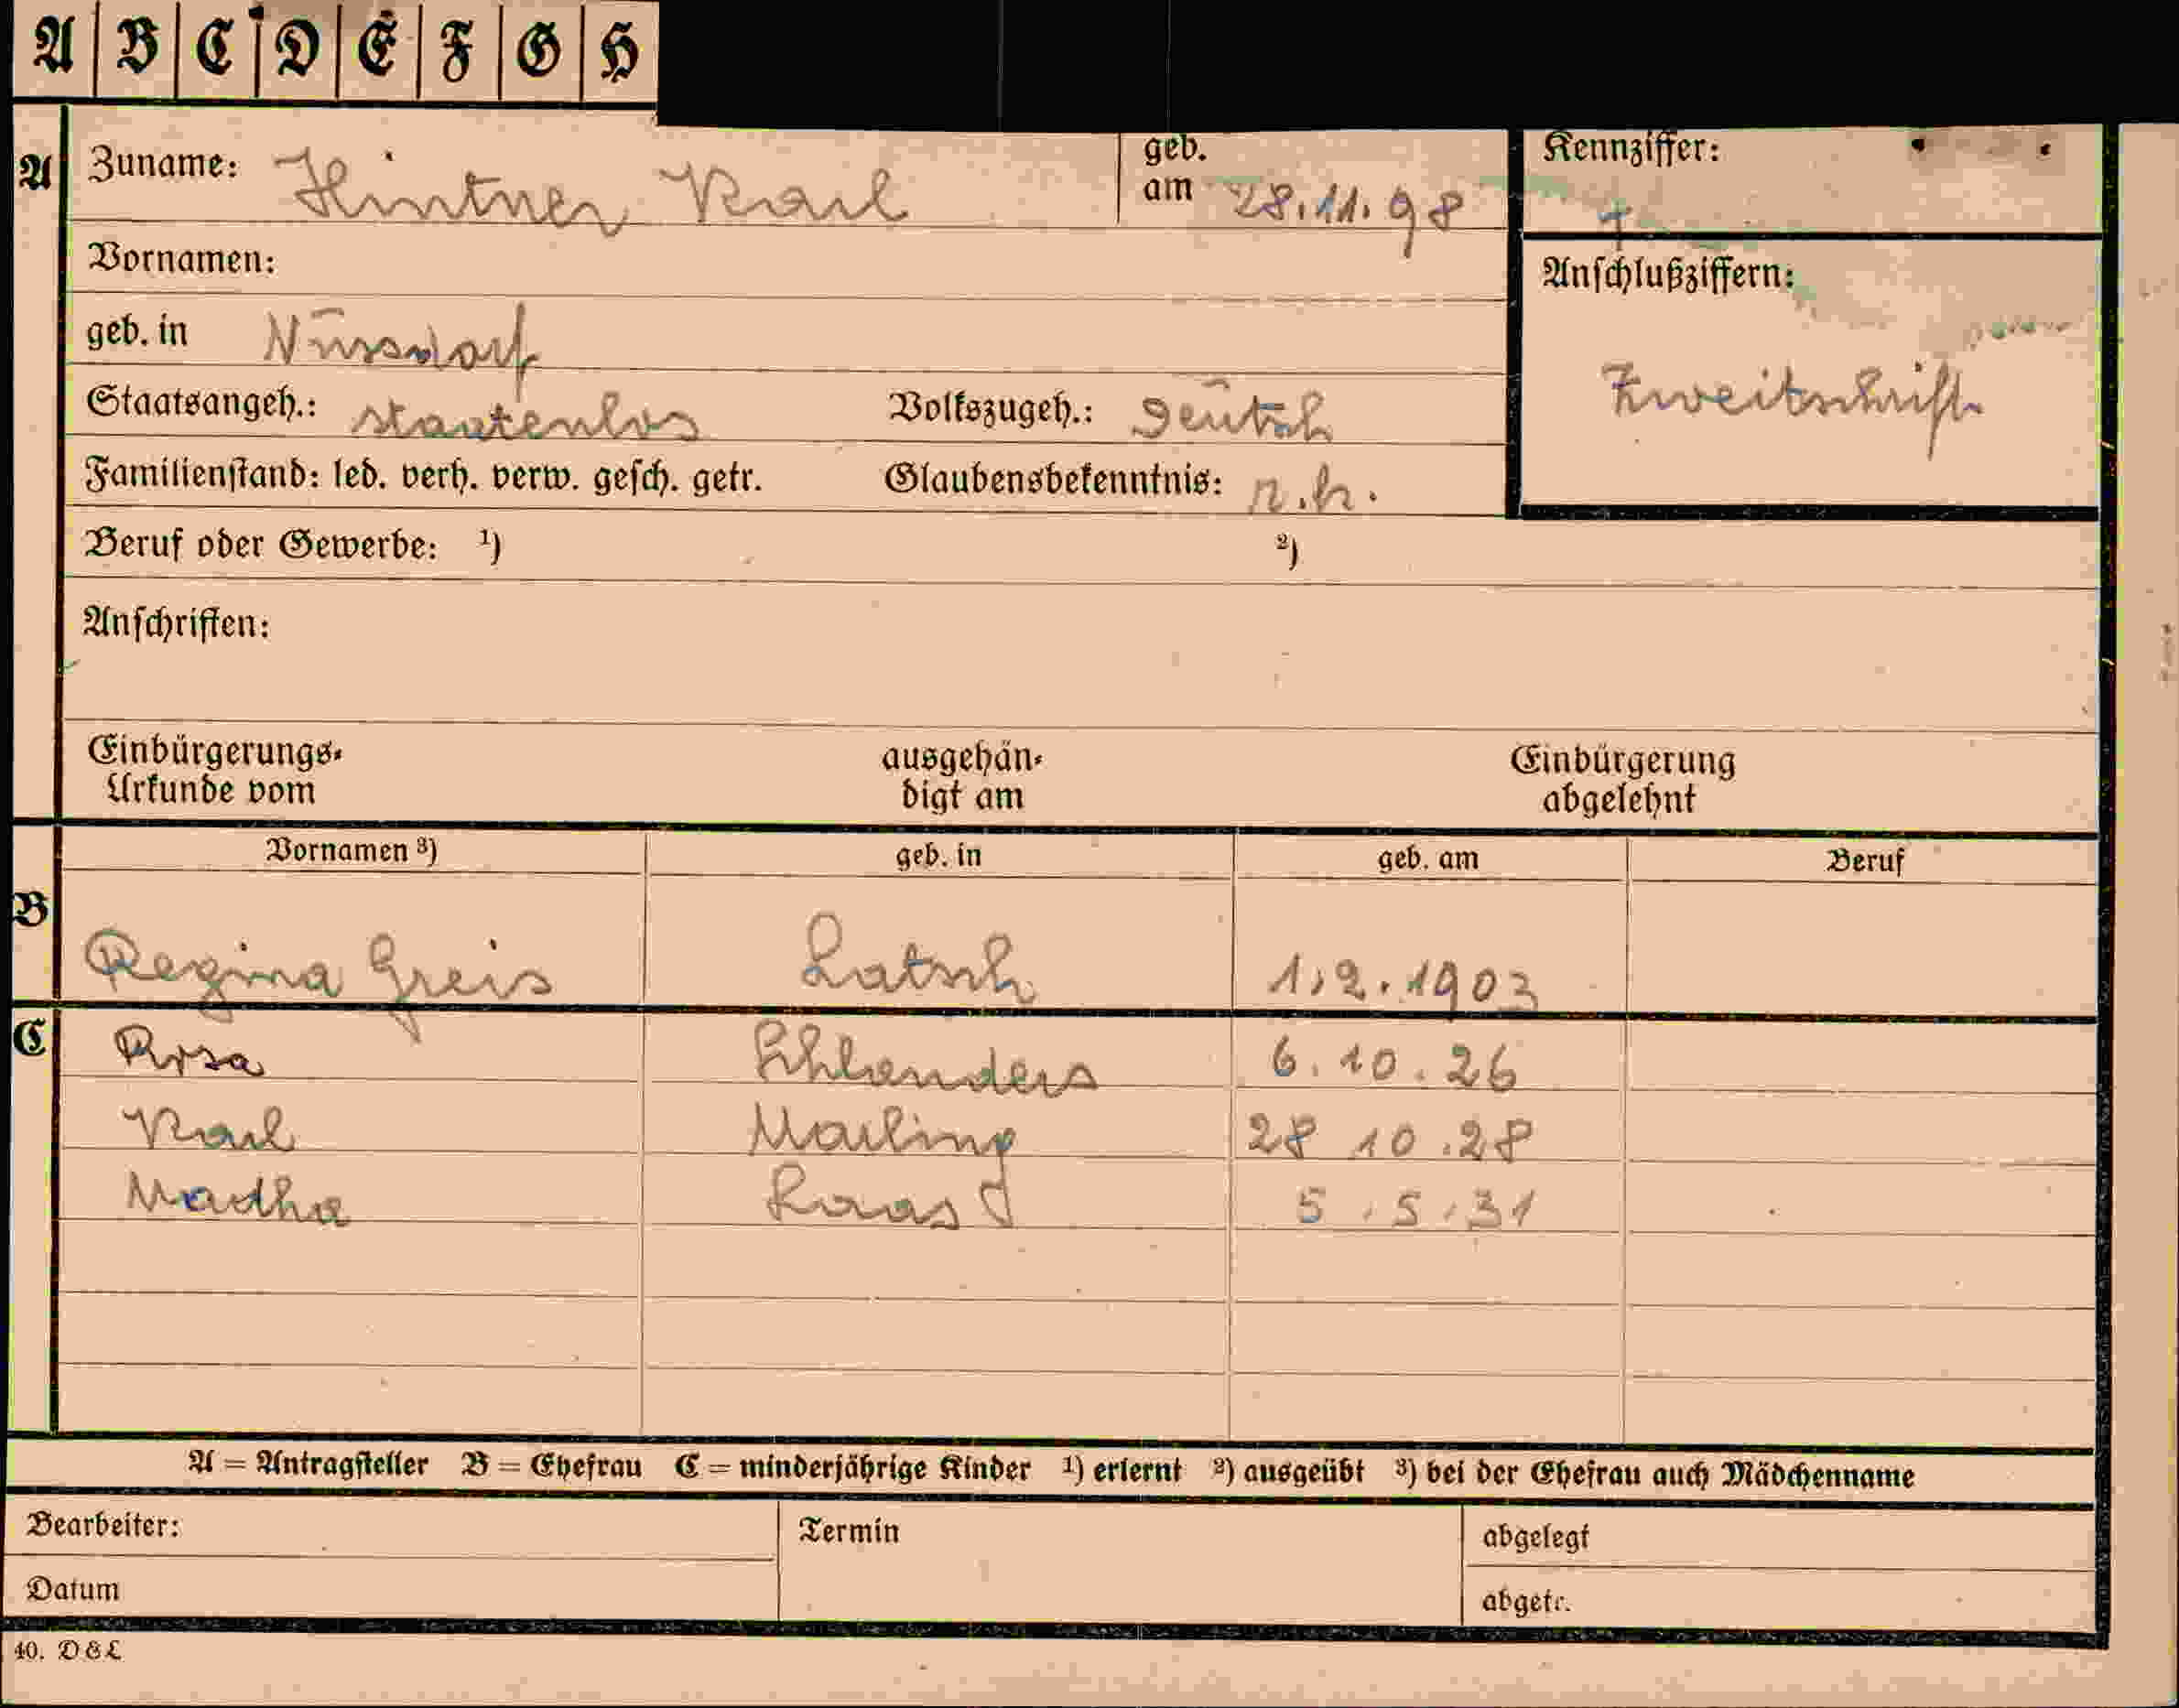 A B C D E F G H
A Zuname: Hintner Karl geb. am 28.11.98 Kennziffer:
Vornamen: Anschlußziffern:
geb. in Nussdorf Zweitschrift
Staatsangeh.: staatenlos Volkszugeh.: Deutsch
Familienstand: led. verh. verw. gesch. getr. Glaubensbekenntnis: r.k.
Beruf oder Gewerbe: ¹) ²)
Anschriften:
Einbürgerungs- ausgehän- Einbürgerung
Urkunde vom digt am abgelehnt
Vornamen ³) geb. in geb. am Beruf
B Regina Greis Latsch 1.2.1903
C Rosa Schlanders 6.10.26
Karl Marling 28 10.28
Martha Laas 5.5.31
A = Antragsteller B = Ehefrau C = minderjährige Kinder ¹) erlernt ²) ausgeübt ³) bei der Ehefrau auch Mädchenname
Bearbeiter: Termin abgelegt
Datum abgetr.
40. D&L